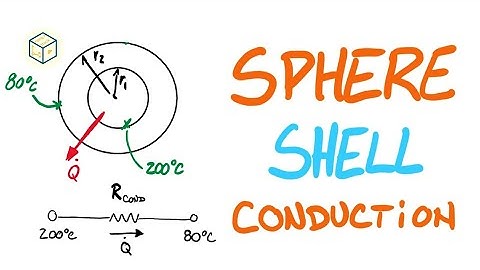 r2
r1
80°C
200°C
Q̇
RCOND
200°C
Q̇
80°C
SPHERE
SHELL
CONDUCTION